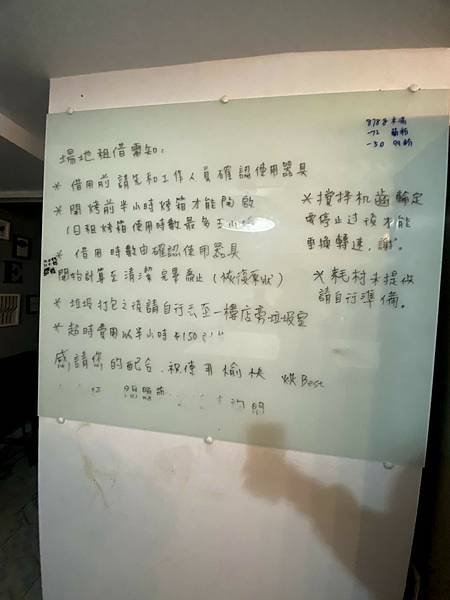 場地租借需知:
* 借用前請先和工作人員確認使用器具
* 開烤前半小時烤箱才能開啟
(日租烤箱使用時數最多五小時
* 借用時數由確認使用器具
開始計算至清潔完畢為止(恢復原狀)
* 垃圾打包之後請自行丟至一樓店旁垃圾室
* 超時費用以半小時$150
感請您的配合,祝使用愉快 烘Best
8788
-72
-50
* 攪拌机齒輪定
要停止过後才能
更換轉速,謝。
* 耗材未提供
請自行準備。